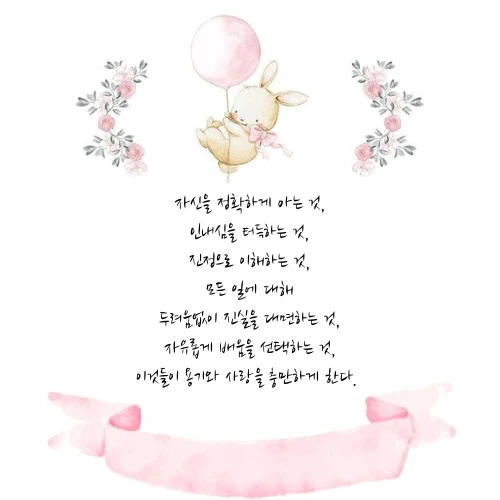 자신을 정확하게 아는 것,
인내심을 터득하는 것,
진정으로 이해하는 것,
모든 일에 대해
두려움없이 진실을 대면하는 것,
자유롭게 배움을 선택하는 것,
이것들이 용기와 사랑을 충만하게 한다.